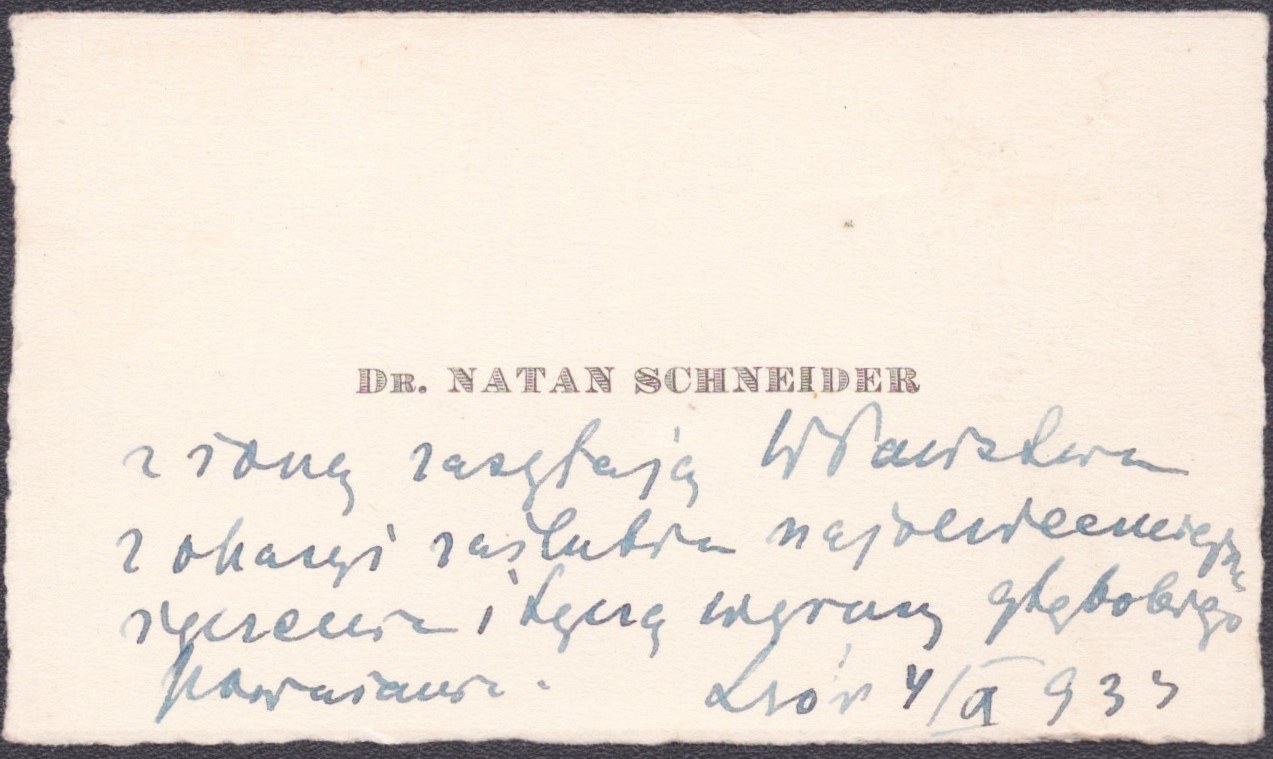 Dr. NATAN SCHNEIDER
z żoną zasyłają WPaństwu
z okazyi zaślubin najserdeczniejsze
życzenia i łączą wyrazy głębokiego
poważania.
Lwów 4/IX 933